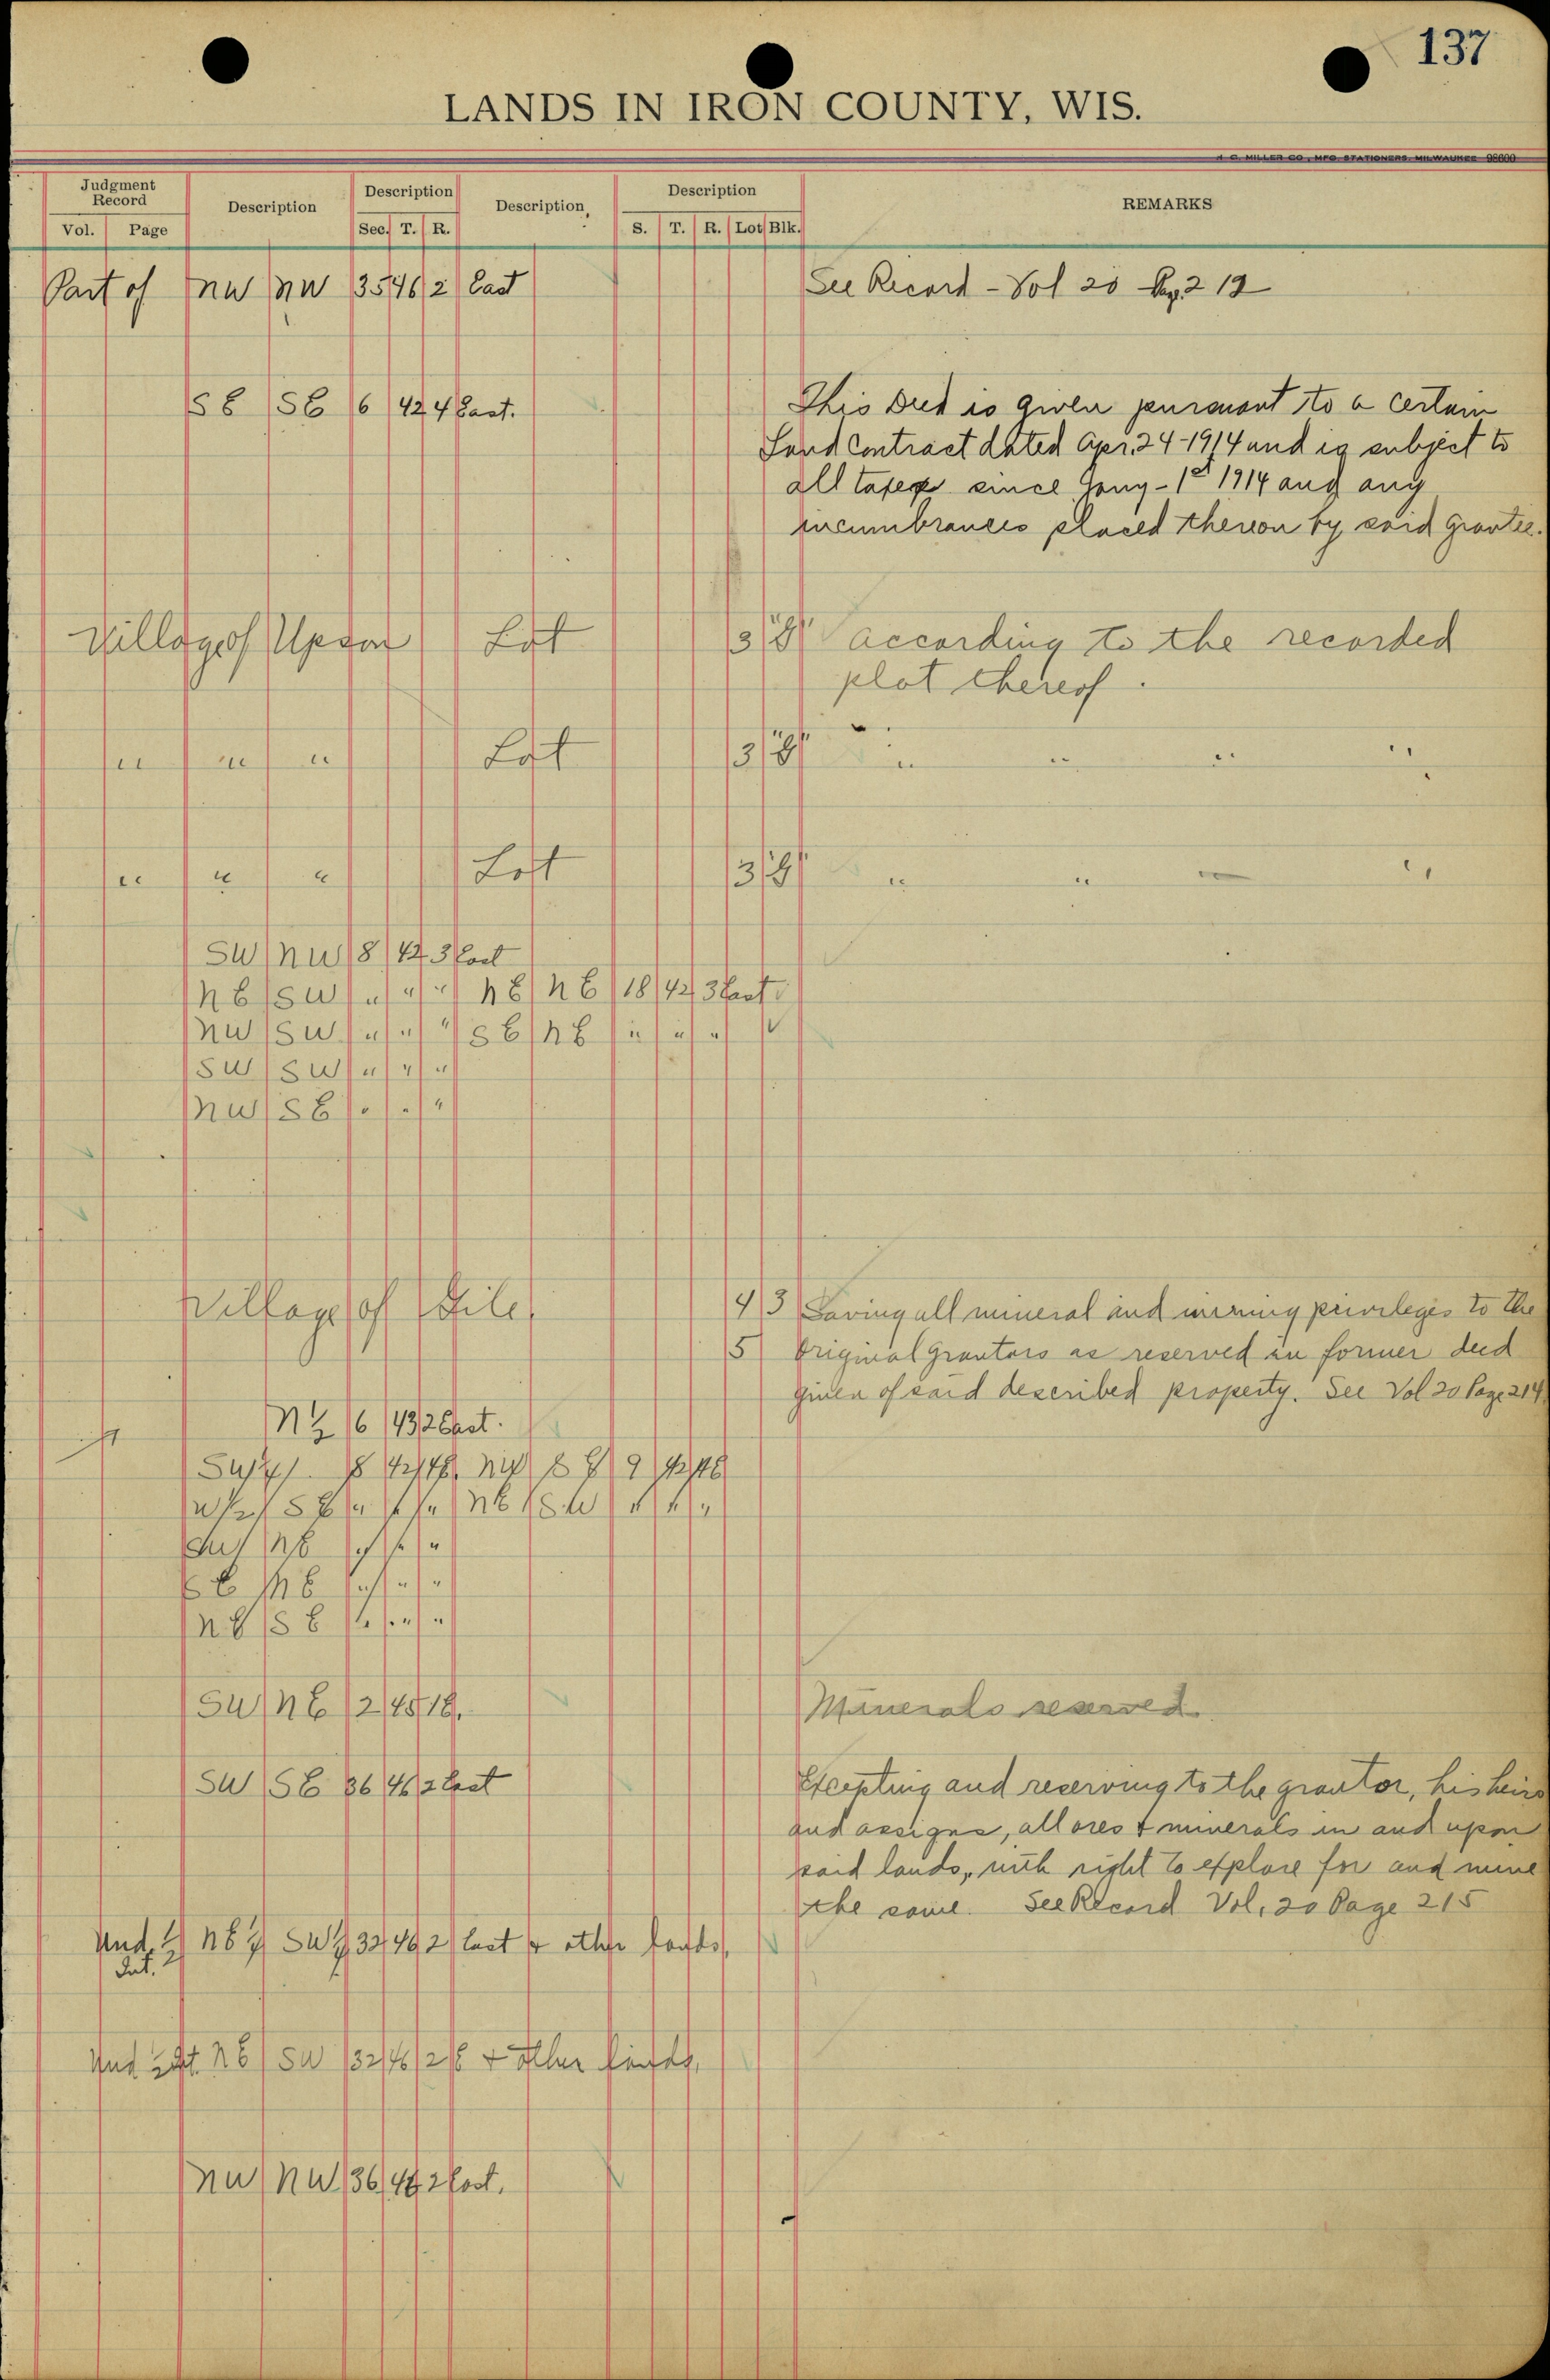 137
LANDS IN IRON COUNTY, WIS.
H. C. MILLER CO., MFG STATIONERS, MILWAUKEE 98600
Judgment Record Description Description Description Description REMARKS
Vol. Page Sec. T. R. S. T. R. Lot Blk.
Part of NW NW 35 46 2 East See Record - Vol 20 Pg. 212
SE SE 6 42 4 East. This Deed is given pursuant to a certain
Land Contract dated Apr. 24-1914 and is subject to
all taxes since Jany - 1st 1914 and any
incumbrances placed thereon by said grantee.
Village of Upson Lot 3 8 according to the recorded
plat thereof.
" " " Lot 3 8 " " " "
" " " Lot 3 8 " " " "
SW NW 8 42 3 East
NE SW " " " NE NE 18 42 3 East
NW SW " " " SE NE " " "
SW SW " " "
NW SE " " "
Village of Gile 4 3 Saving all mineral and mining privileges to the
5 Original Grantors as reserved in former deed
given of said described property. See Vol 20 Page 214
N½ 6 43 2 East.
8 42 9 42
NE SW " " "
NE " " "
SE NE " " "
NE SE " " "
SW NE 2 45 1E. Minerals reserved
SW SE 36 46 2 East Excepting and reserving to the grantor, his heirs
and assigns, all ores & minerals in and upon
said lands, with right to explore for and mine
the same. See Record Vol. 20 Page 215
Und. ½ NE SW 32 46 2 East & other lands.
Int.
Und NE SW 32 46 2 E & other lands.
NW NW 36 2 East.